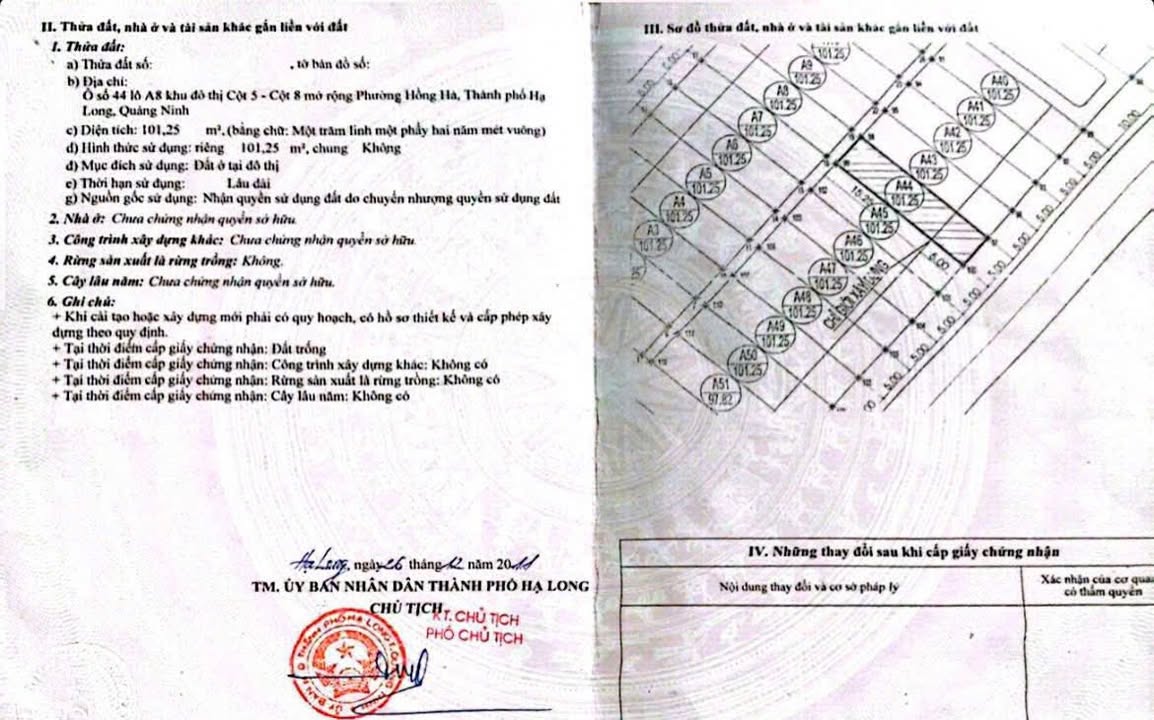 II. Thửa đất, nhà ở và tài sản khác gắn liền với đất
1. Thửa đất:
a) Thửa đất số: , tờ bản đồ số:
b) Địa chỉ:
Ô số 44 lô A8 khu đô thị Cột 5 - Cột 8 mở rộng Phường Hồng Hà, Thành phố Hạ
Long, Quảng Ninh
c) Diện tích: 101,25 m², (bằng chữ: Một trăm linh một phẩy hai năm mét vuông)
d) Hình thức sử dụng: riêng 101,25 m², chung Không
đ) Mục đích sử dụng: Đất ở tại đô thị
e) Thời hạn sử dụng: Lâu dài
g) Nguồn gốc sử dụng: Nhận quyền sử dụng đất do chuyển nhượng quyền sử dụng đất
2. Nhà ở: Chưa chứng nhận quyền sở hữu.
3. Công trình xây dựng khác: Chưa chứng nhận quyền sở hữu.
4. Rừng sản xuất là rừng trồng: Không.
5. Cây lâu năm: Chưa chứng nhận quyền sở hữu.
6. Ghi chú:
+ Khi cải tạo hoặc xây dựng mới phải có quy hoạch, có hồ sơ thiết kế và cấp phép xây
dựng theo quy định.
+ Tại thời điểm cấp giấy chứng nhận: Đất trống
+ Tại thời điểm cấp giấy chứng nhận: Công trình xây dựng khác: Không có
+ Tại thời điểm cấp giấy chứng nhận: Rừng sản xuất là rừng trồng: Không có
+ Tại thời điểm cấp giấy chứng nhận: Cây lâu năm: Không có
Hạ Long, ngày 26 tháng 12 năm 2011
TM. ỦY BAN NHÂN DÂN THÀNH PHỐ HẠ LONG
CHỦ TỊCH
KT. CHỦ TỊCH
PHÓ CHỦ TỊCH
III. Sơ đồ thửa đất, nhà ở và tài sản khác gắn liền với đất
101.25
A9
101.25
A8
101.25
A7
101.25
A6
101.25
A5
101.25
A4
101.25
A3
101.25
A40
101.25
A41
101.25
A42
101.25
A43
101.25
A44
101.25
A45
101.25
A46
101.25
A47
101.25
A48
101.25
A49
101.25
A50
101.25
A51
97.82
5.00
CHỈ GIỚI XÂY DỰNG
10.00
5.00
5.00
5.00
5.00
5.00
5.00
5.00
IV. Những thay đổi sau khi cấp giấy chứng nhận
Nội dung thay đổi và cơ sở pháp lý
Xác nhận của cơ qua
có thẩm quyền